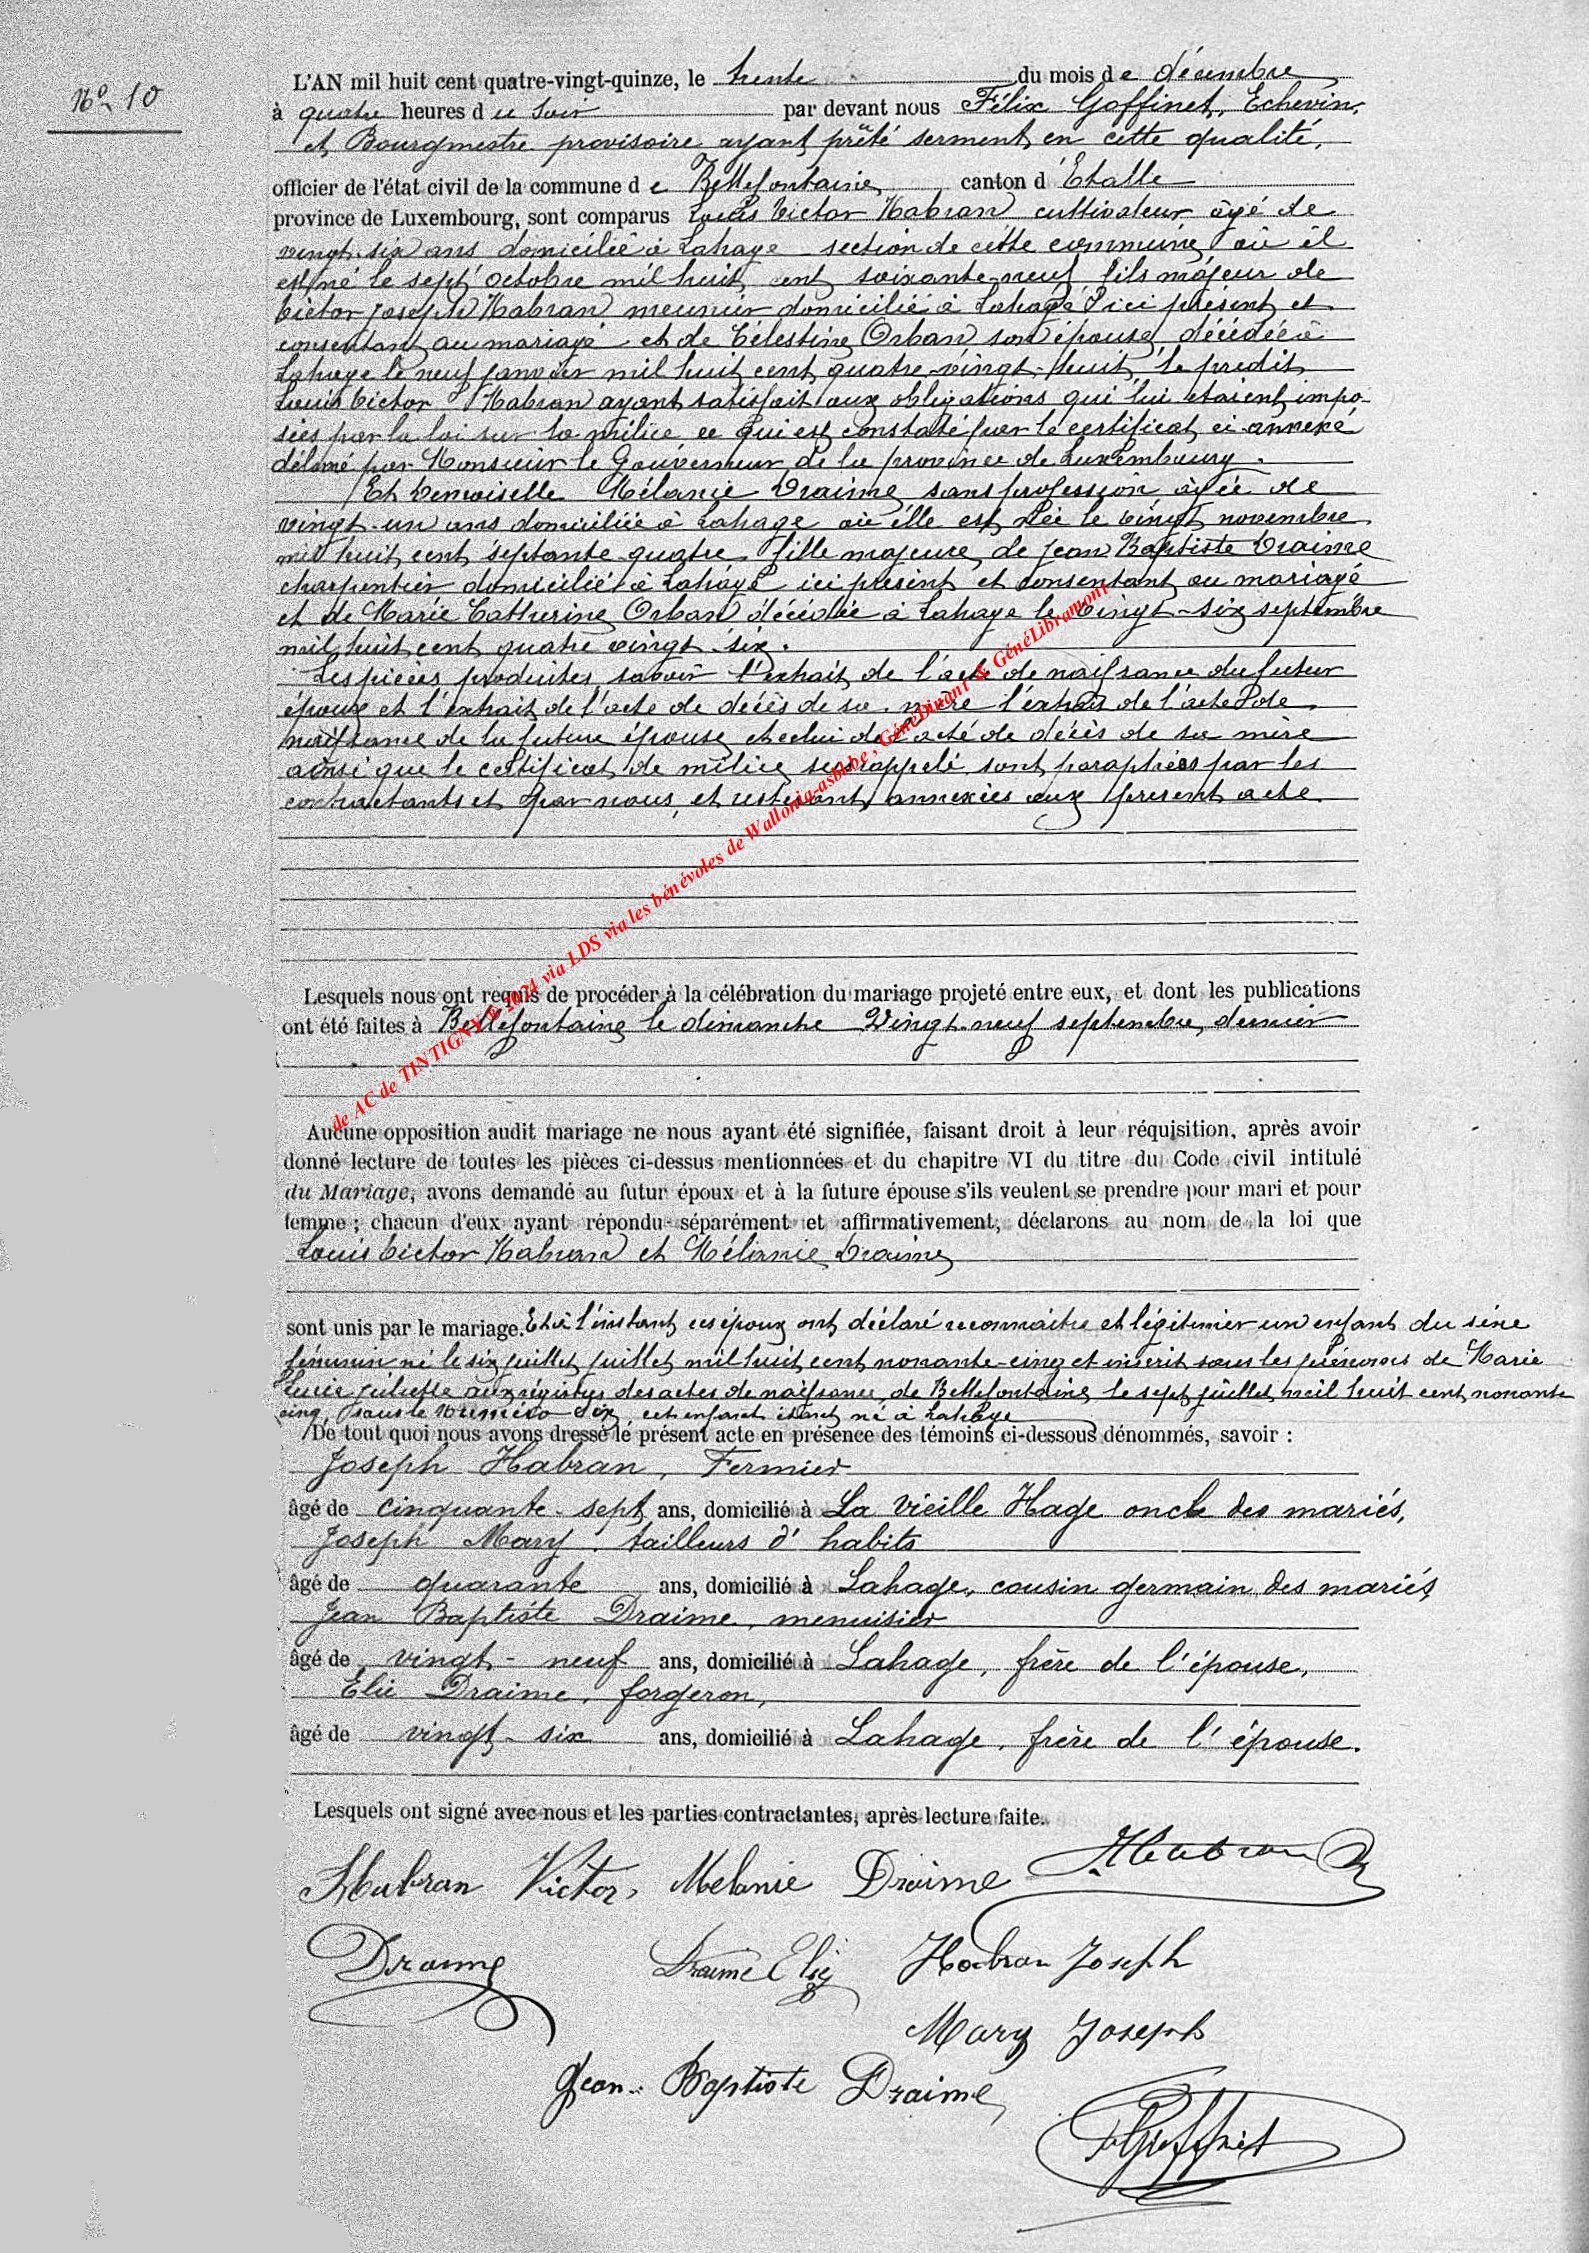 No 10
L'AN mil huit cent quatre-vingt-quinze, le trente du mois de décembre
à quatre heures du soir par devant nous Félix Goffinet, Echevin,
et Bourgmestre provisoire ayant prêté serment en cette qualité,
officier de l'état civil de la commune de Bellefontaine, canton d'Etalle
province de Luxembourg, sont comparus Louis Victor Habran cultivateur âgé de
vingt-six ans domicilié à Lahage section de cette commune où il
est né le sept octobre mil huit cent soixante neuf fils majeur de
Victor Joseph Habran meunier domicilié à Lahage ici présent et
consentant au mariage et de Célestine Orban son épouse, décédée à
Lahage le neuf janvier mil huit cent quatre-vingt-huit, le predit
Louis Victor Habran ayant satisfait aux obligations qui lui étaient impo-
sées par la loi sur la milice ce qui est constaté par le certificat ci-annexé
délivré par Monsieur le Gouverneur de la province de Luxembourg.
Et Demoiselle Mélanie Draime sans profession âgée de
vingt-un ans domiciliée à Lahage où elle est née le vingt novembre
mil huit cent septante quatre, fille majeure de Jean Baptiste Draime
charpentier domicilié à Lahage ici présent et consentant au mariage
et de Marie Catherine Orban décédée à Lahage le vingt-six septembre
mil huit cent quatre vingt six.
Les pièces produites savoir l'extrait de l'acte de naissance du futur
époux et l'extrait de l'acte de décès de sa mère l'extrait de l'acte de
naissance de la future épouse et celui de l'acte de décès de sa mère
ainsi que le certificat de milice susrappelé sont paraphées par les
contractants et par nous, et resteront annexées aux present acte.
Lesquels nous ont requis de procéder à la célébration du mariage projeté entre eux, et dont les publications
ont été faites à Bellefontaine le dimanche Vingt-neuf septembre dernier
Aucune opposition audit mariage ne nous ayant été signifiée, faisant droit à leur réquisition, après avoir
donné lecture de toutes les pièces ci-dessus mentionnées et du chapitre VI du titre du Code civil intitulé
du Mariage, avons demandé au futur époux et à la future épouse s'ils veulent se prendre pour mari et pour
femme ; chacun d'eux ayant répondu séparément et affirmativement, déclarons au nom de la loi que
Louis Victor Habran et Mélanie Draime
sont unis par le mariage. Et à l'instant ces époux ont déclaré reconnaitre et légitimer un enfant du sexe
féminin né le six juillet juillet mil huit cent nonante-cinq et inscrit sous les prénoms de Marie
Lucie Juliette aux régistres des actes de naissance de Bellefontaine le sept juillet mil huit cent nonante
cinq, sous le numéro six, cet enfant étant né à Lahage
De tout quoi nous avons dressé le présent acte en présence des témoins ci-dessous dénommés, savoir :
Joseph Habran, Fermier
âgé de cinquante-sept ans, domicilié à La Vieille Hage oncle des mariés,
Joseph Mary, tailleurs d'habits
âgé de quarante ans, domicilié à Lahage, cousin germain des mariés,
Jean Baptiste Draime, menuisier
âgé de vingt-neuf ans, domicilié à Lahage, frère de l'épouse,
Elie Draime, forgeron,
âgé de vingt-six ans, domicilié à Lahage, frère de l'épouse.
Lesquels ont signé avec nous et les parties contractantes, après lecture faite.
Habran Victor, Melanie Draime Habran
Draime Draime Elie Habran Joseph
Mary Joseph
Jean Baptiste Draime
Goffinet
de AC de TINTIGNY © 2024 via LDS via les bénévoles de Wallonia-asbl.be, GénéDinant & GénéLibramont